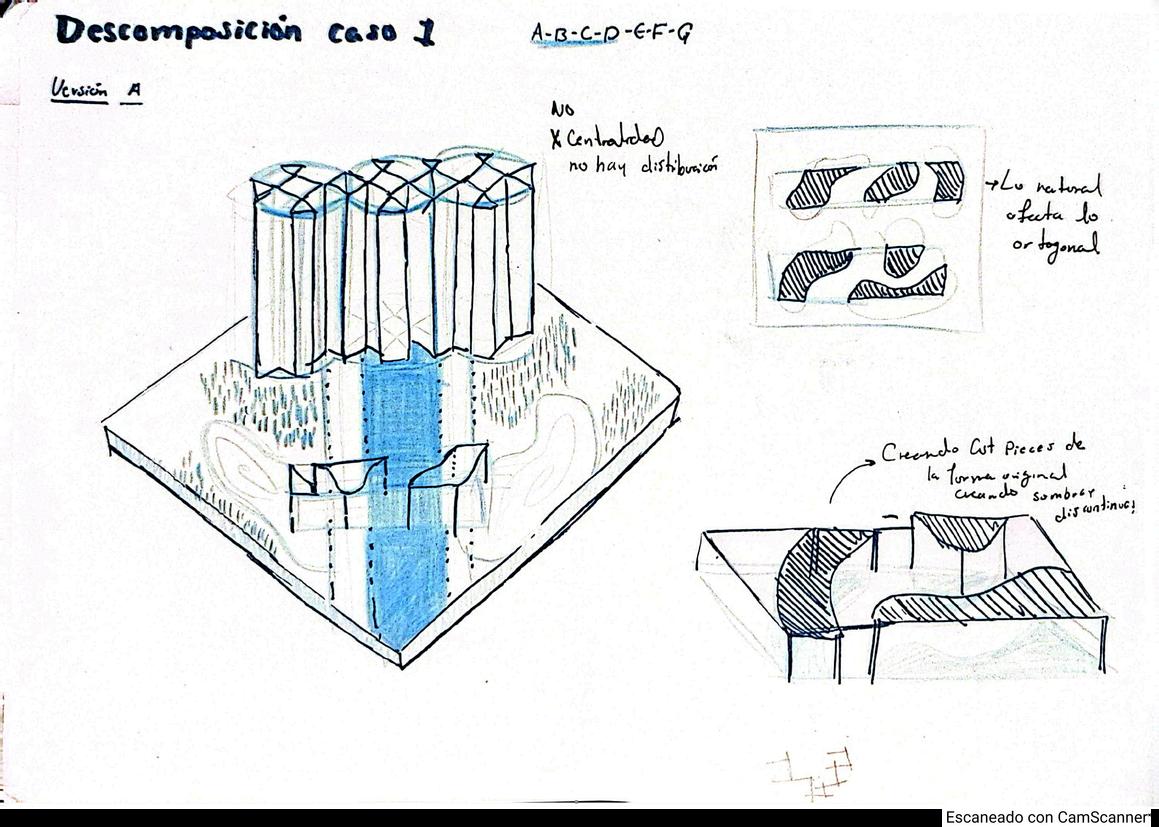 Descomposición caso 1
A-B-C-D-E-F-G
Versión A
No
X Centralidad
no hay distribución
→ Lo natural
afecta lo
ortogonal
Creando Cut Pieces de
la forma original
creando sombras
discontinuas
Escaneado con CamScanner